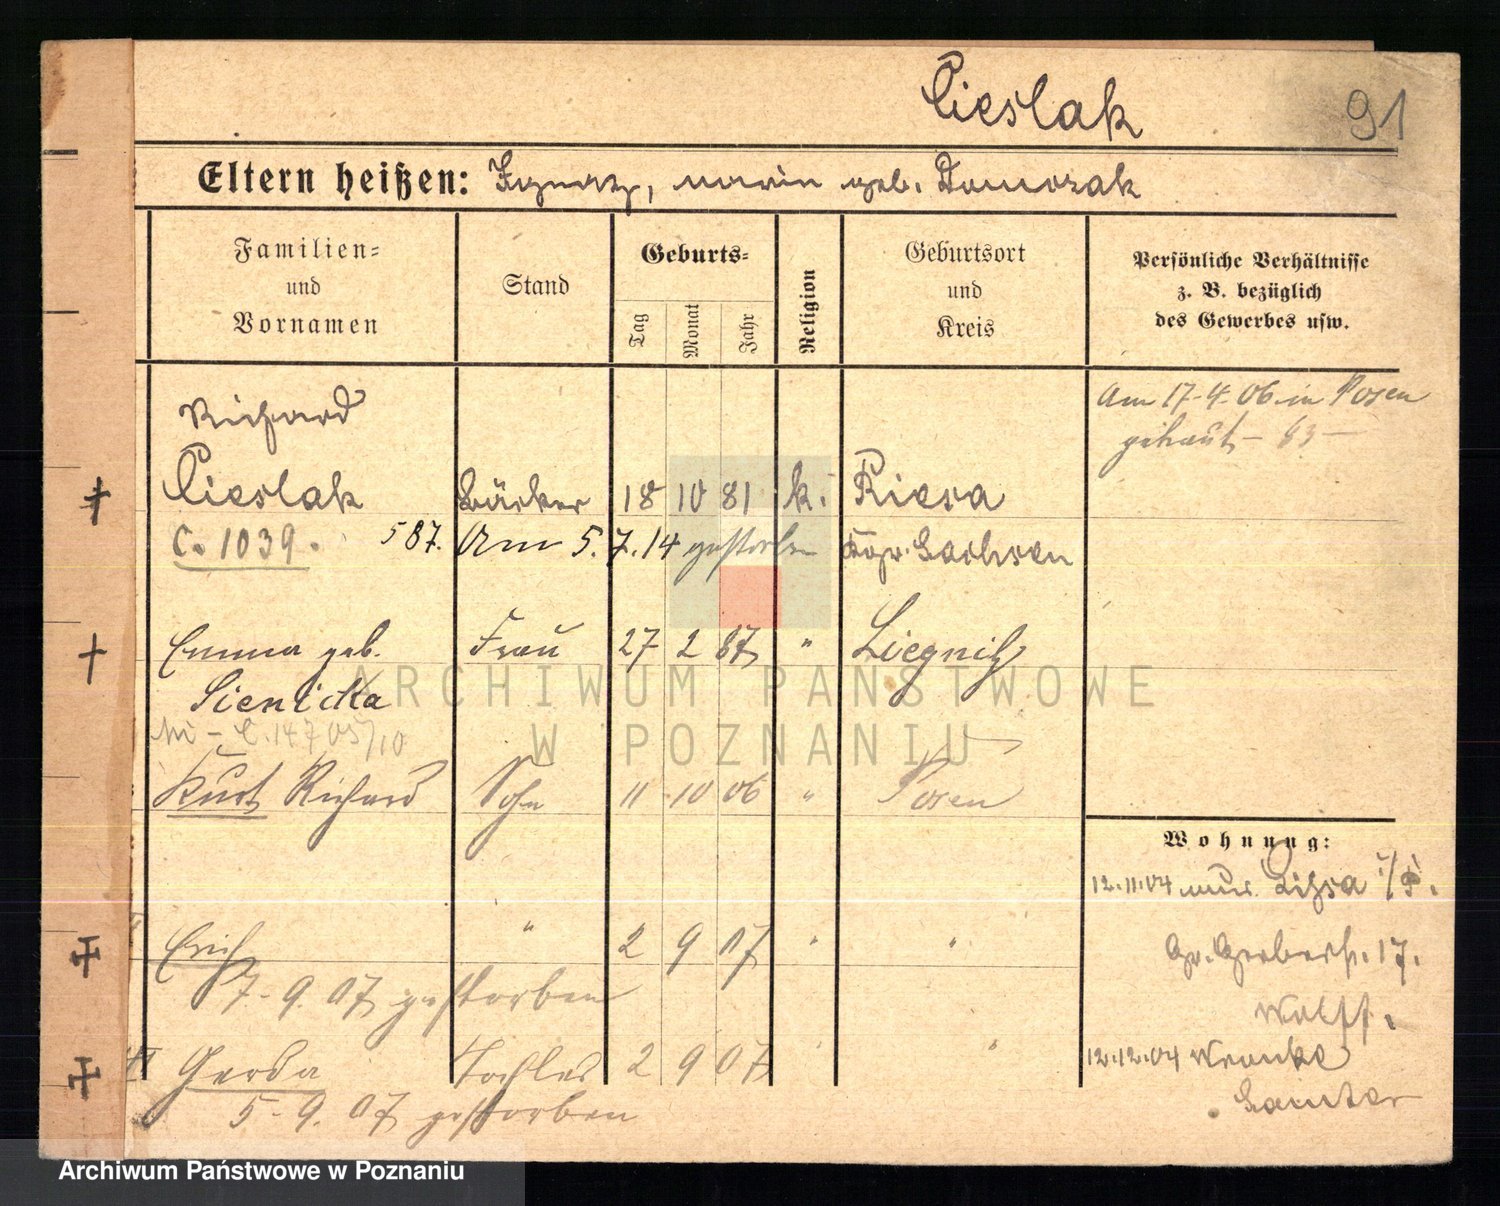 Cieslak
91
Eltern heißen: Ignatz, Maria geb. Domozak
Familien=
und
Vornamen
Stand
Geburts=
Tag
Monat
Jahr
Religion
Geburtsort
und
Kreis
Persönliche Verhältnisse
z. B. bezüglich
des Gewerbes usw.
Am 17.4.06 in Posen
getraut
Richard
Cieslak Bäcker 18 10 81 k. Riesa
C. 1039. 587. Am 5.7.14 gestorben Kgr. Sachsen
Emma geb. Frau 27 2 87 " Liegnitz
Sienicka
C. 14705/10
Kurt Richard Sohn 11 10 06 " Posen
Erich " 2 9 07 " "
7.9.07 gestorben
Gerda Tochter 2 9 07 " "
5.9.07 gestorben
Wohnung:
12.11.04 Lissa i/P.
Gr. Gerberstr. 17.
Wolff.
12.12.04 Wronke
Samter
ARCHIWUM PAŃSTWOWE
W POZNANIU
Archiwum Państwowe w Poznaniu